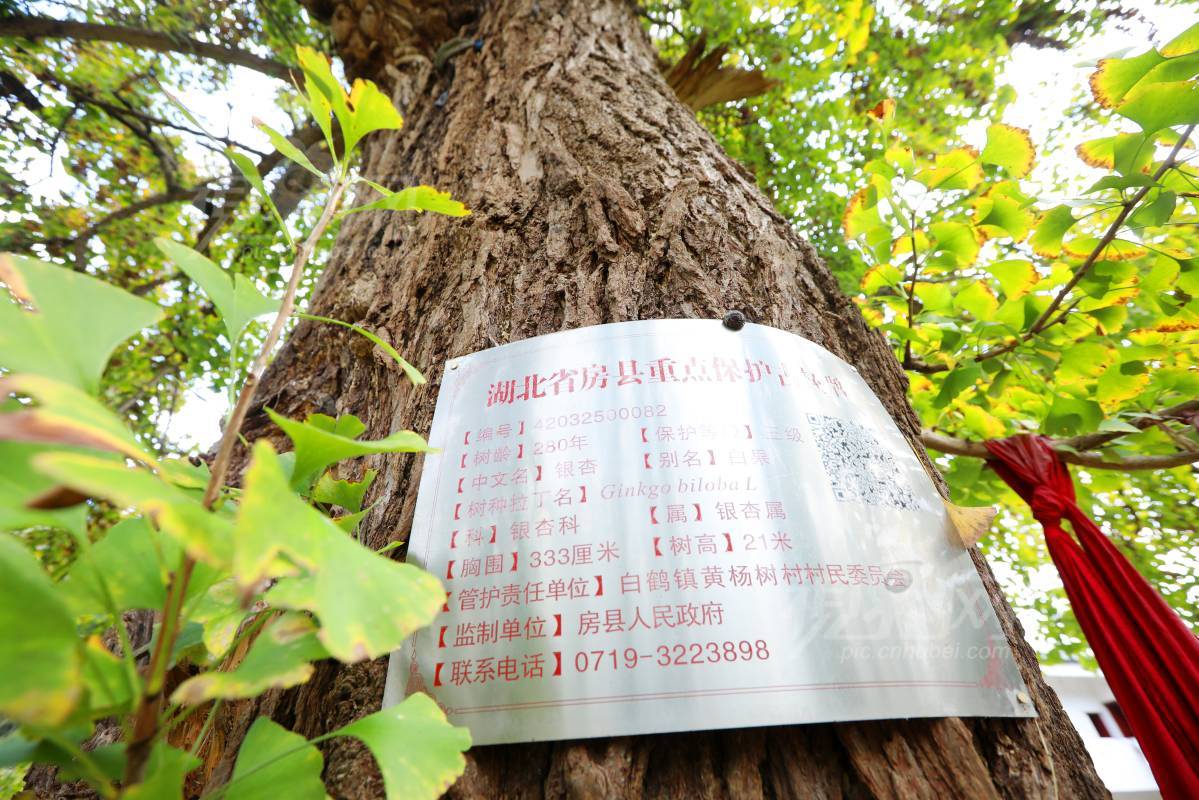 湖北省房县重点保护古树牌
【编号】42032500082
【树龄】280年 【保护等级】三级
【中文名】银杏 【别名】白果
【树种拉丁名】Ginkgo biloba L
【科】银杏科 【属】银杏属
【胸围】333厘米 【树高】21米
【管护责任单位】白鹤镇黄杨树村村民委员会
【监制单位】房县人民政府
【联系电话】0719-3223898
pic.cnhubei.com